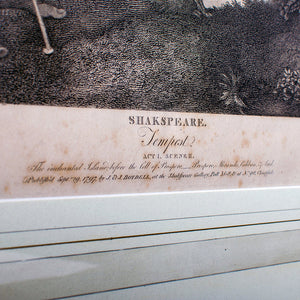 SHAKSPEARE.
Tempest.
ACT I. SCENE II.
The enchanted Island: before the cell of Prospero. Prospero, Miranda, Caliban, & Ariel.
Published Sept. 29, 1797, by J. & J. BOYDELL, at the Shakspeare Gallery, Pall Mall, & at No. 90, Cheapside.